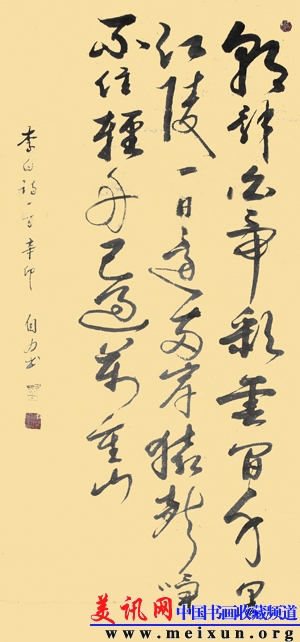 朝辭白帝彩雲間千里
江陵一日還兩岸猿聲啼
不住輕舟已過萬重山
李白詩一首 辛卯 自力書
美讯网 中国书画收藏频道
www.meixun.org